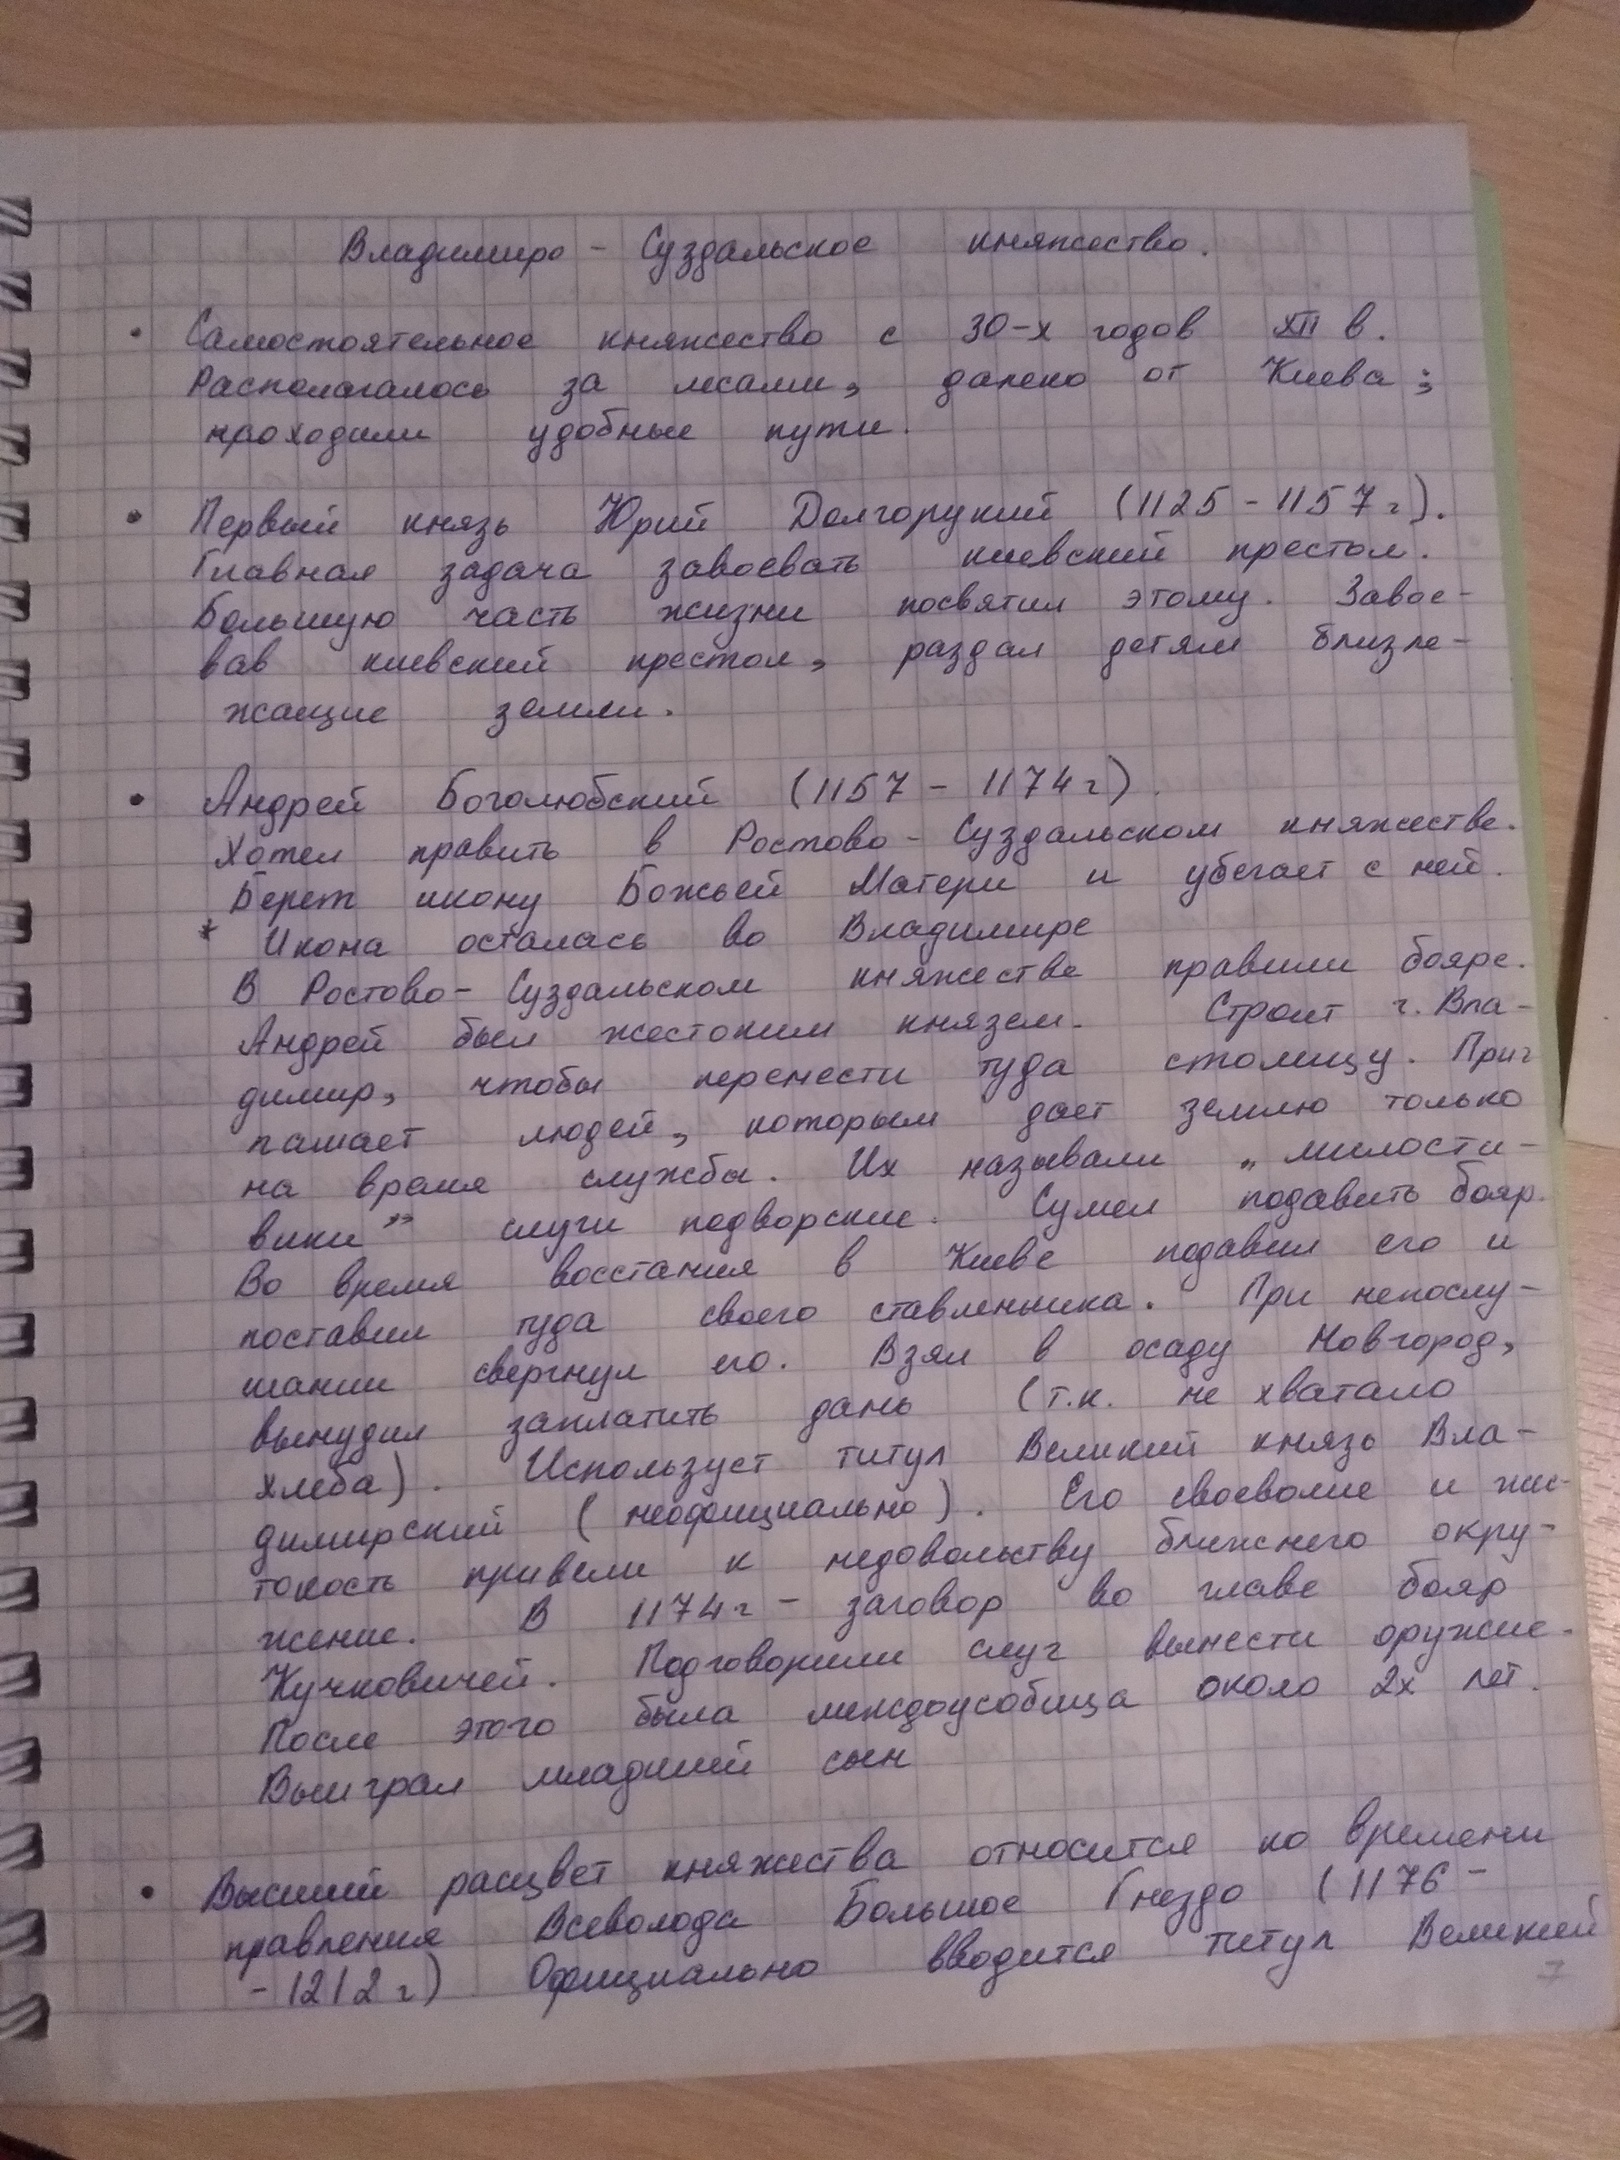 Владимиро - Суздальское княжество.
• Самостоятельное княжество с 30-х годов XII в.
Располагалось за лесами, далеко от Киева;
проходили удобные пути.
• Первый князь Юрий Долгорукий (1125 - 1157 г).
Главная задача завоевать киевский престол.
Большую часть жизни посвятил этому. Завое-
вав киевский престол, раздал детям близле-
жащие земли.
• Андрей Боголюбский (1157 - 1174 г).
Хотел править в Ростово - Суздальском княжестве.
Берет икону Божьей Матери и убегает с ней.
* Икона осталась во Владимире
В Ростово - Суздальском княжестве правили бояре.
Андрей был жестоким князем. Строит г. Вла-
димир, чтобы перенести туда столицу. Приг
лашает людей, которым дает землю только
на время службы. Их называли „милости-
вики” слуги подворские. Сумел подавить бояр.
Во время восстания в Киеве подавил его и
поставил туда своего ставленника. При непослу-
шании свергнул его. Взял в осаду Новгород,
вынудил заплатить дань (т.к. не хватало
хлеба). Использует титул Великий князь Вла-
димирский (неофициально). Его своеволие и жес-
токость привели к недовольству ближнего окру-
жение. В 1174 г - заговор во главе бояр
Кучковичей. Подговорили слуг вынести оружие.
После этого была междоусобица около 2х лет.
Выиграл младший сын
• Высший расцвет княжества относится ко времени
правления Всеволода Большое Гнездо (1176 -
- 1212 г) Официально вводится титул Великий
7